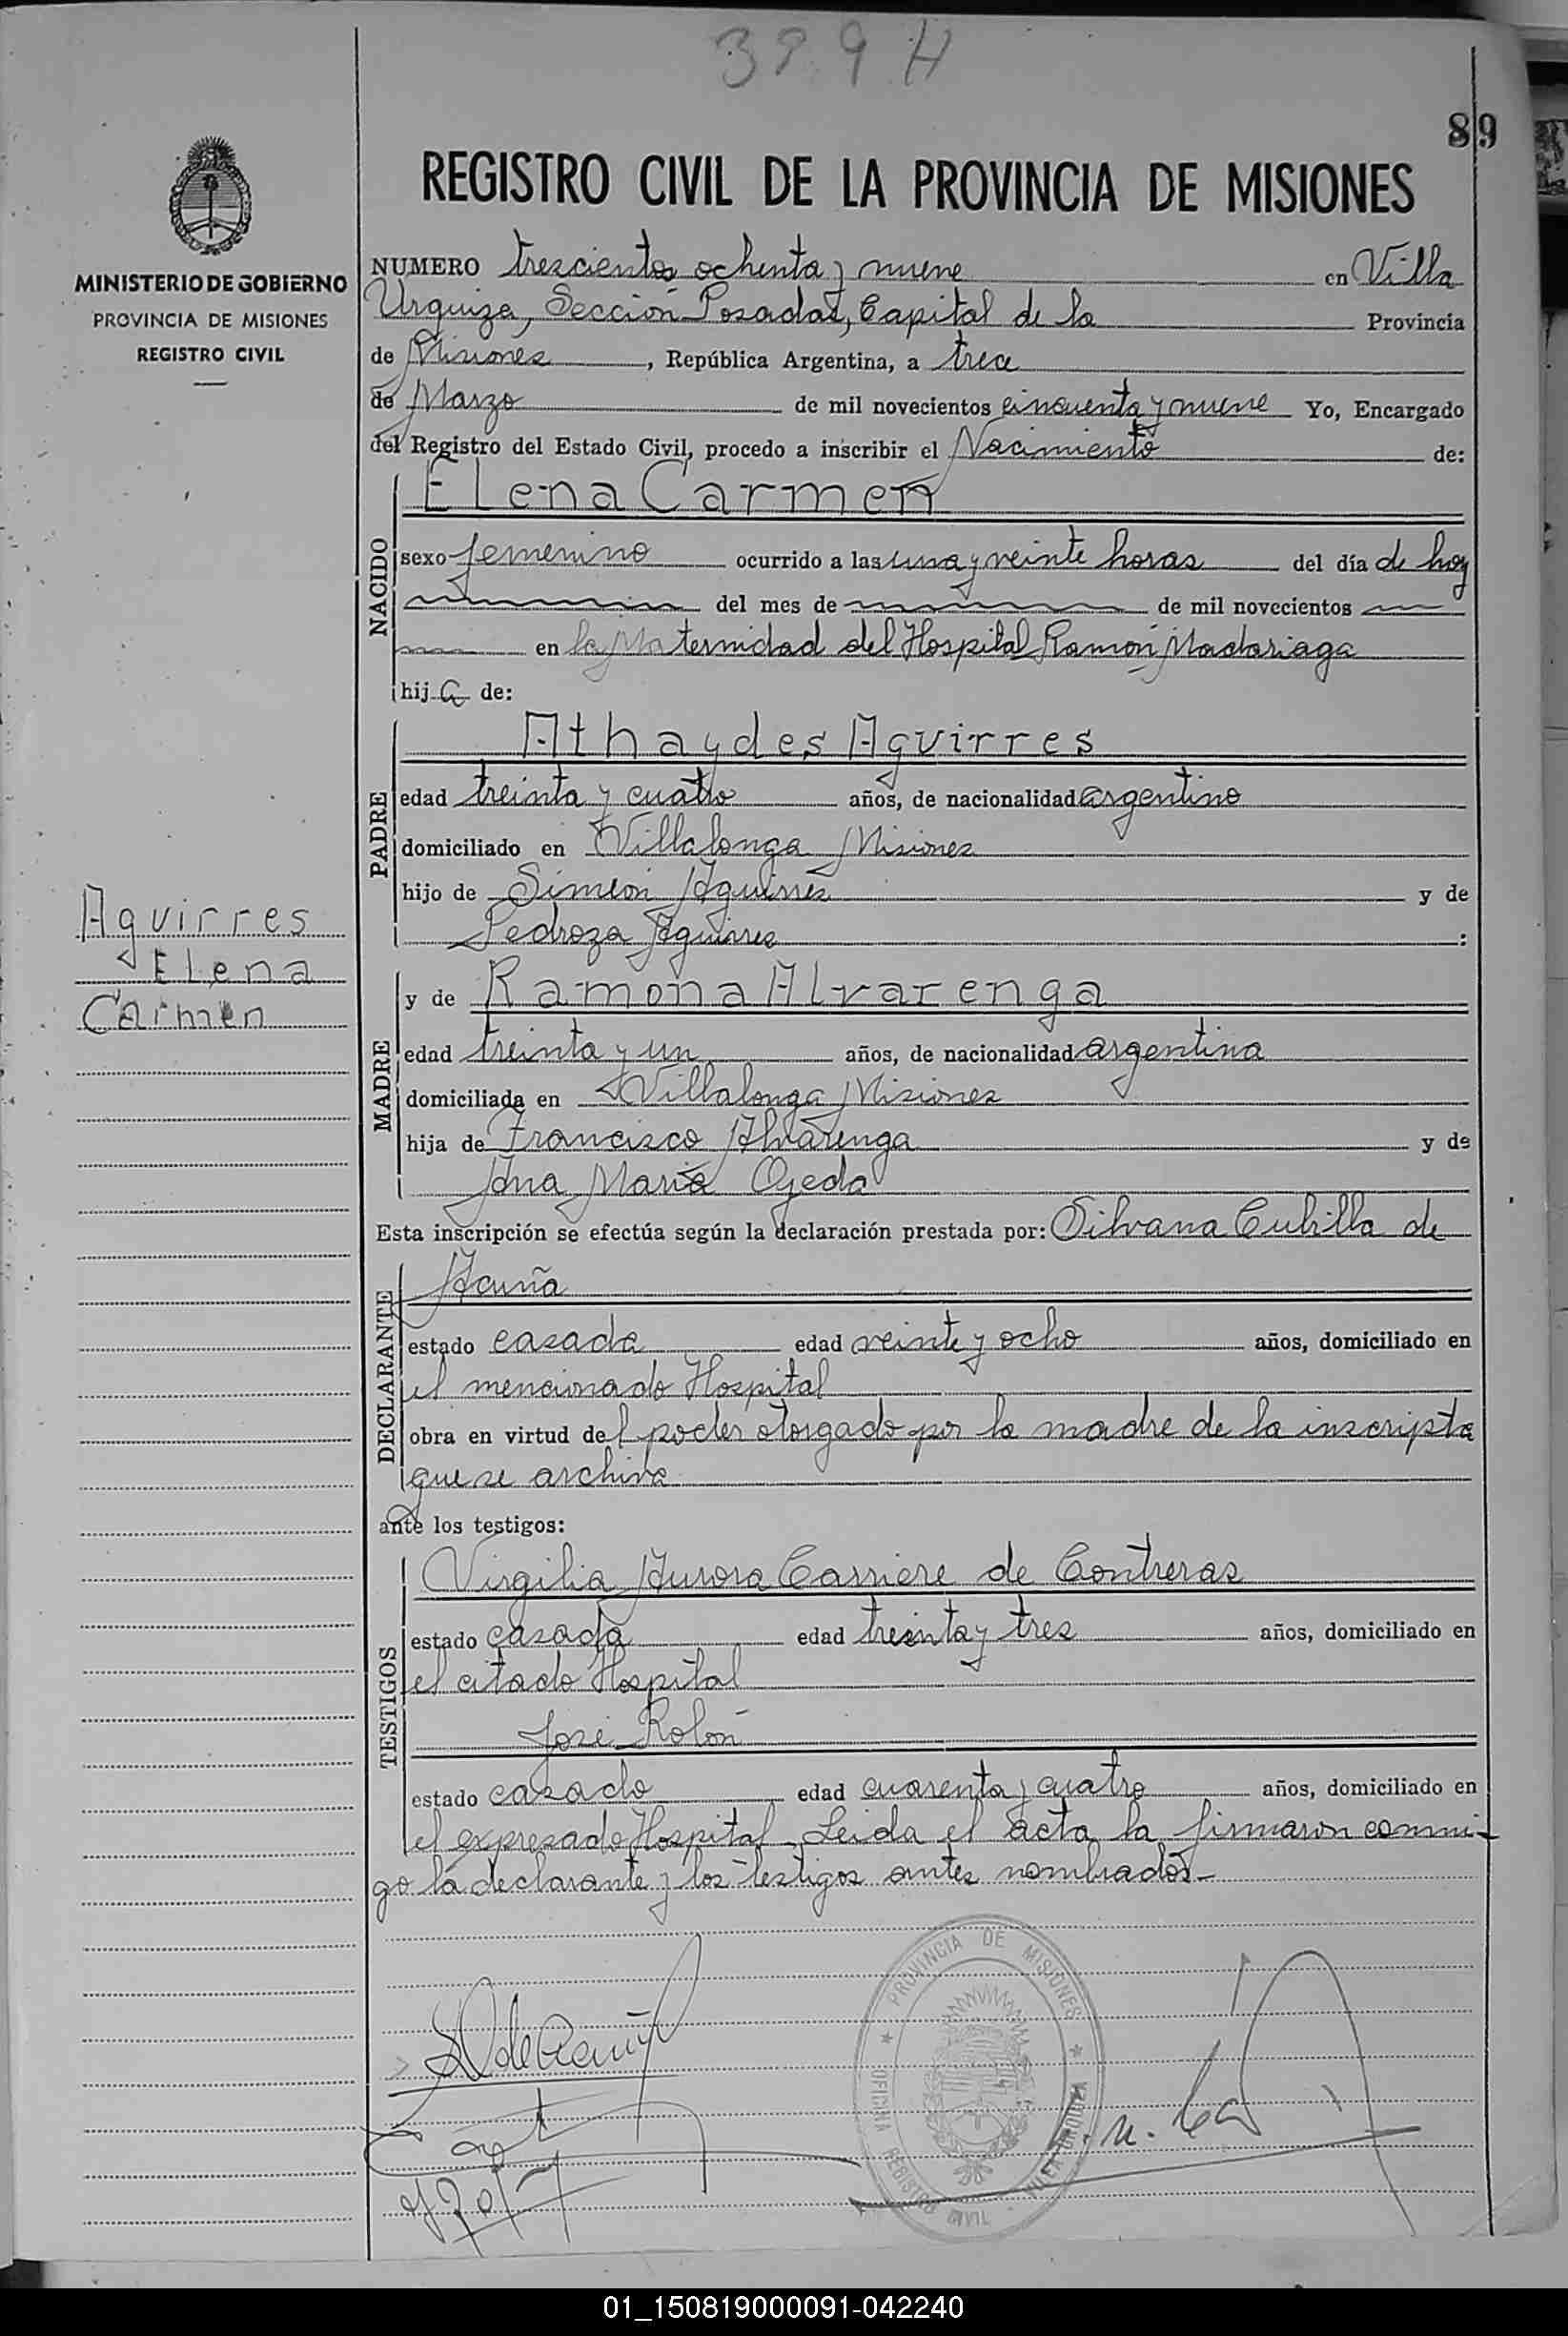 389 H
89
MINISTERIO DE GOBIERNO
PROVINCIA DE MISIONES
REGISTRO CIVIL
REGISTRO CIVIL DE LA PROVINCIA DE MISIONES
NUMERO trescientos ochenta y nueve en Villa
Urquiza, Sección Posadas, Capital de la Provincia
de Misiones, República Argentina, a trece
de Marzo de mil novecientos cincuenta y nueve Yo, Encargado
del Registro del Estado Civil, procedo a inscribir el Nacimiento de:
NACIDO
Elena Carmen
sexo femenino ocurrido a las una y veinte horas del día de hoy
del mes de de mil novecientos
en la Maternidad del Hospital Ramón Madariaga
hija de:
PADRE
Athaydes Aguirres
edad treinta y cuatro años, de nacionalidad argentino
domiciliado en Villalonga Misiones
hijo de Simeón Aguirres y de
Pedroza Aguirres :
Aguirres
Elena
Carmen
MADRE
y de Ramona Alvarenga
edad treinta y un años, de nacionalidad argentina
domiciliada en Villalonga Misiones
hija de Francisco Alvarenga y de
Ana María Ojeda
Esta inscripción se efectúa según la declaración prestada por: Silvana Cubilla de
DECLARANTE
Acuña
estado casada edad veinte y ocho años, domiciliado en
el mencionado Hospital
obra en virtud del poder otorgado por la madre de la inscripta
que se archiva
ante los testigos:
TESTIGOS
Virgilia Aurora Carriere de Contreras
estado casada edad treinta y tres años, domiciliado en
el citado Hospital
José Rolón
estado casado edad cuarenta y cuatro años, domiciliado en
el expresado Hospital. Leida el acta la firmaron conmi-
go la declarante y los testigos antes nombrados-
de Acuña
PROVINCIA DE MISIONES
OFICINA REGISTRO CIVIL VILLA URQUIZA
01_150819000091-042240